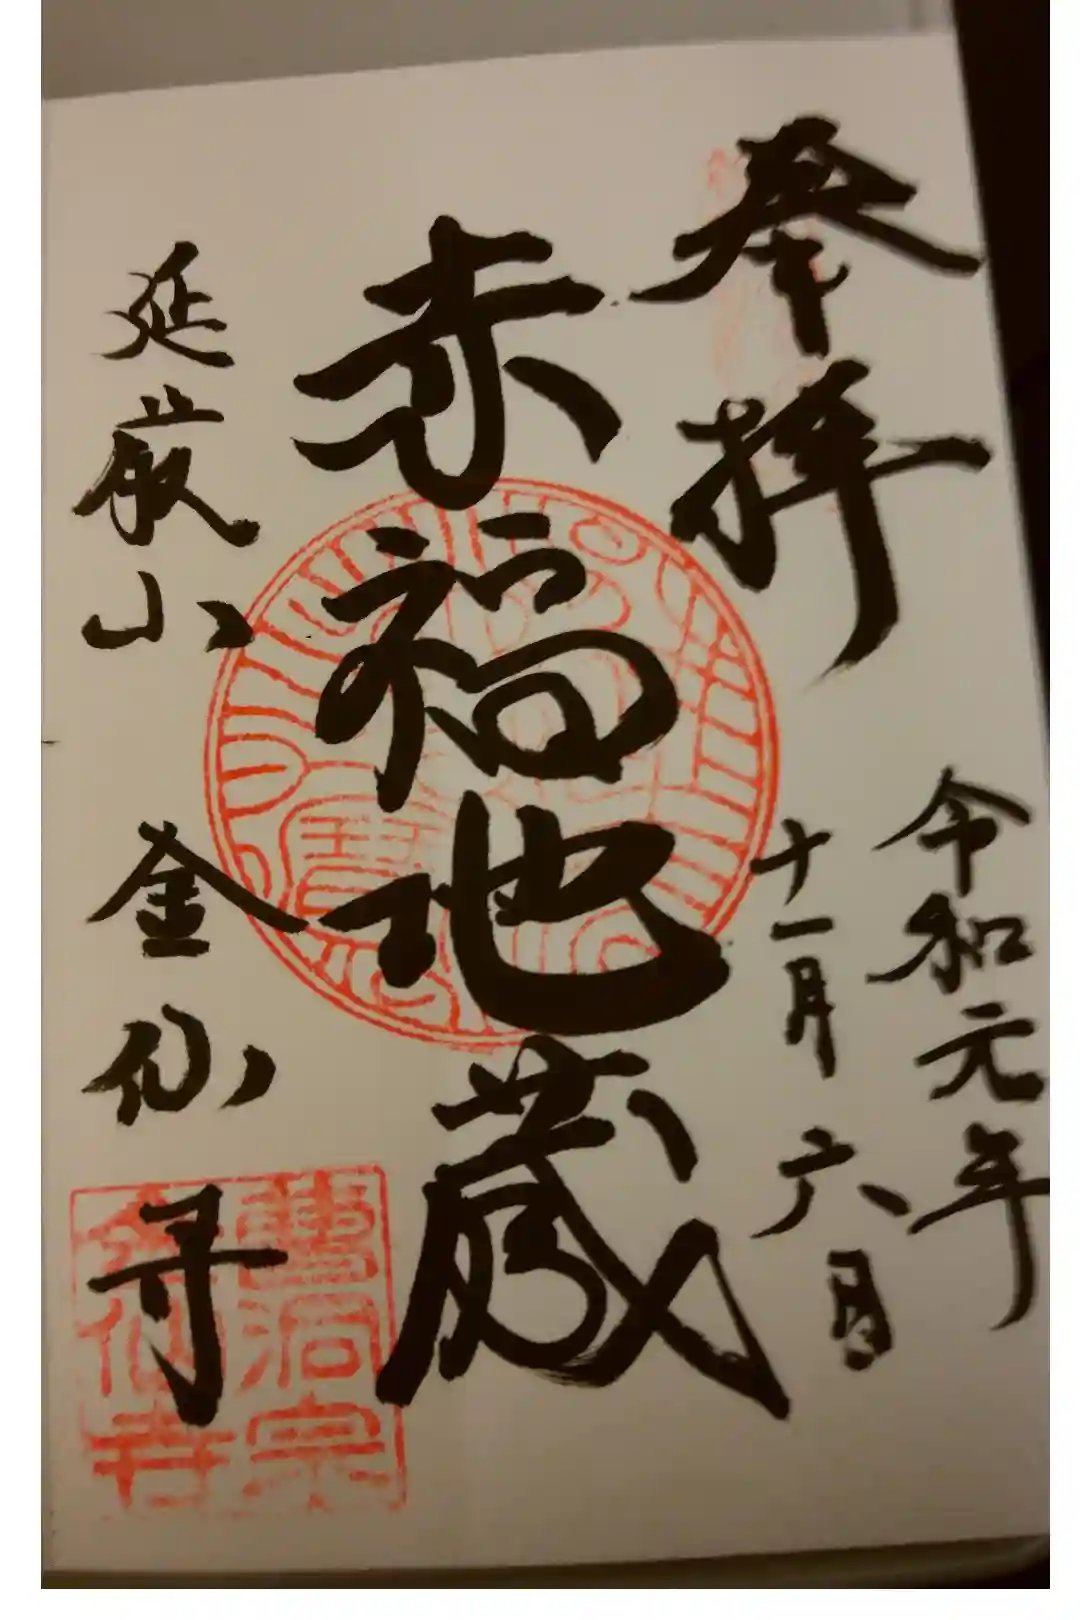 奉拝
令和元年
十一月六日
赤福地蔵
延嶽山 金仙寺
曹洞宗
金仙寺